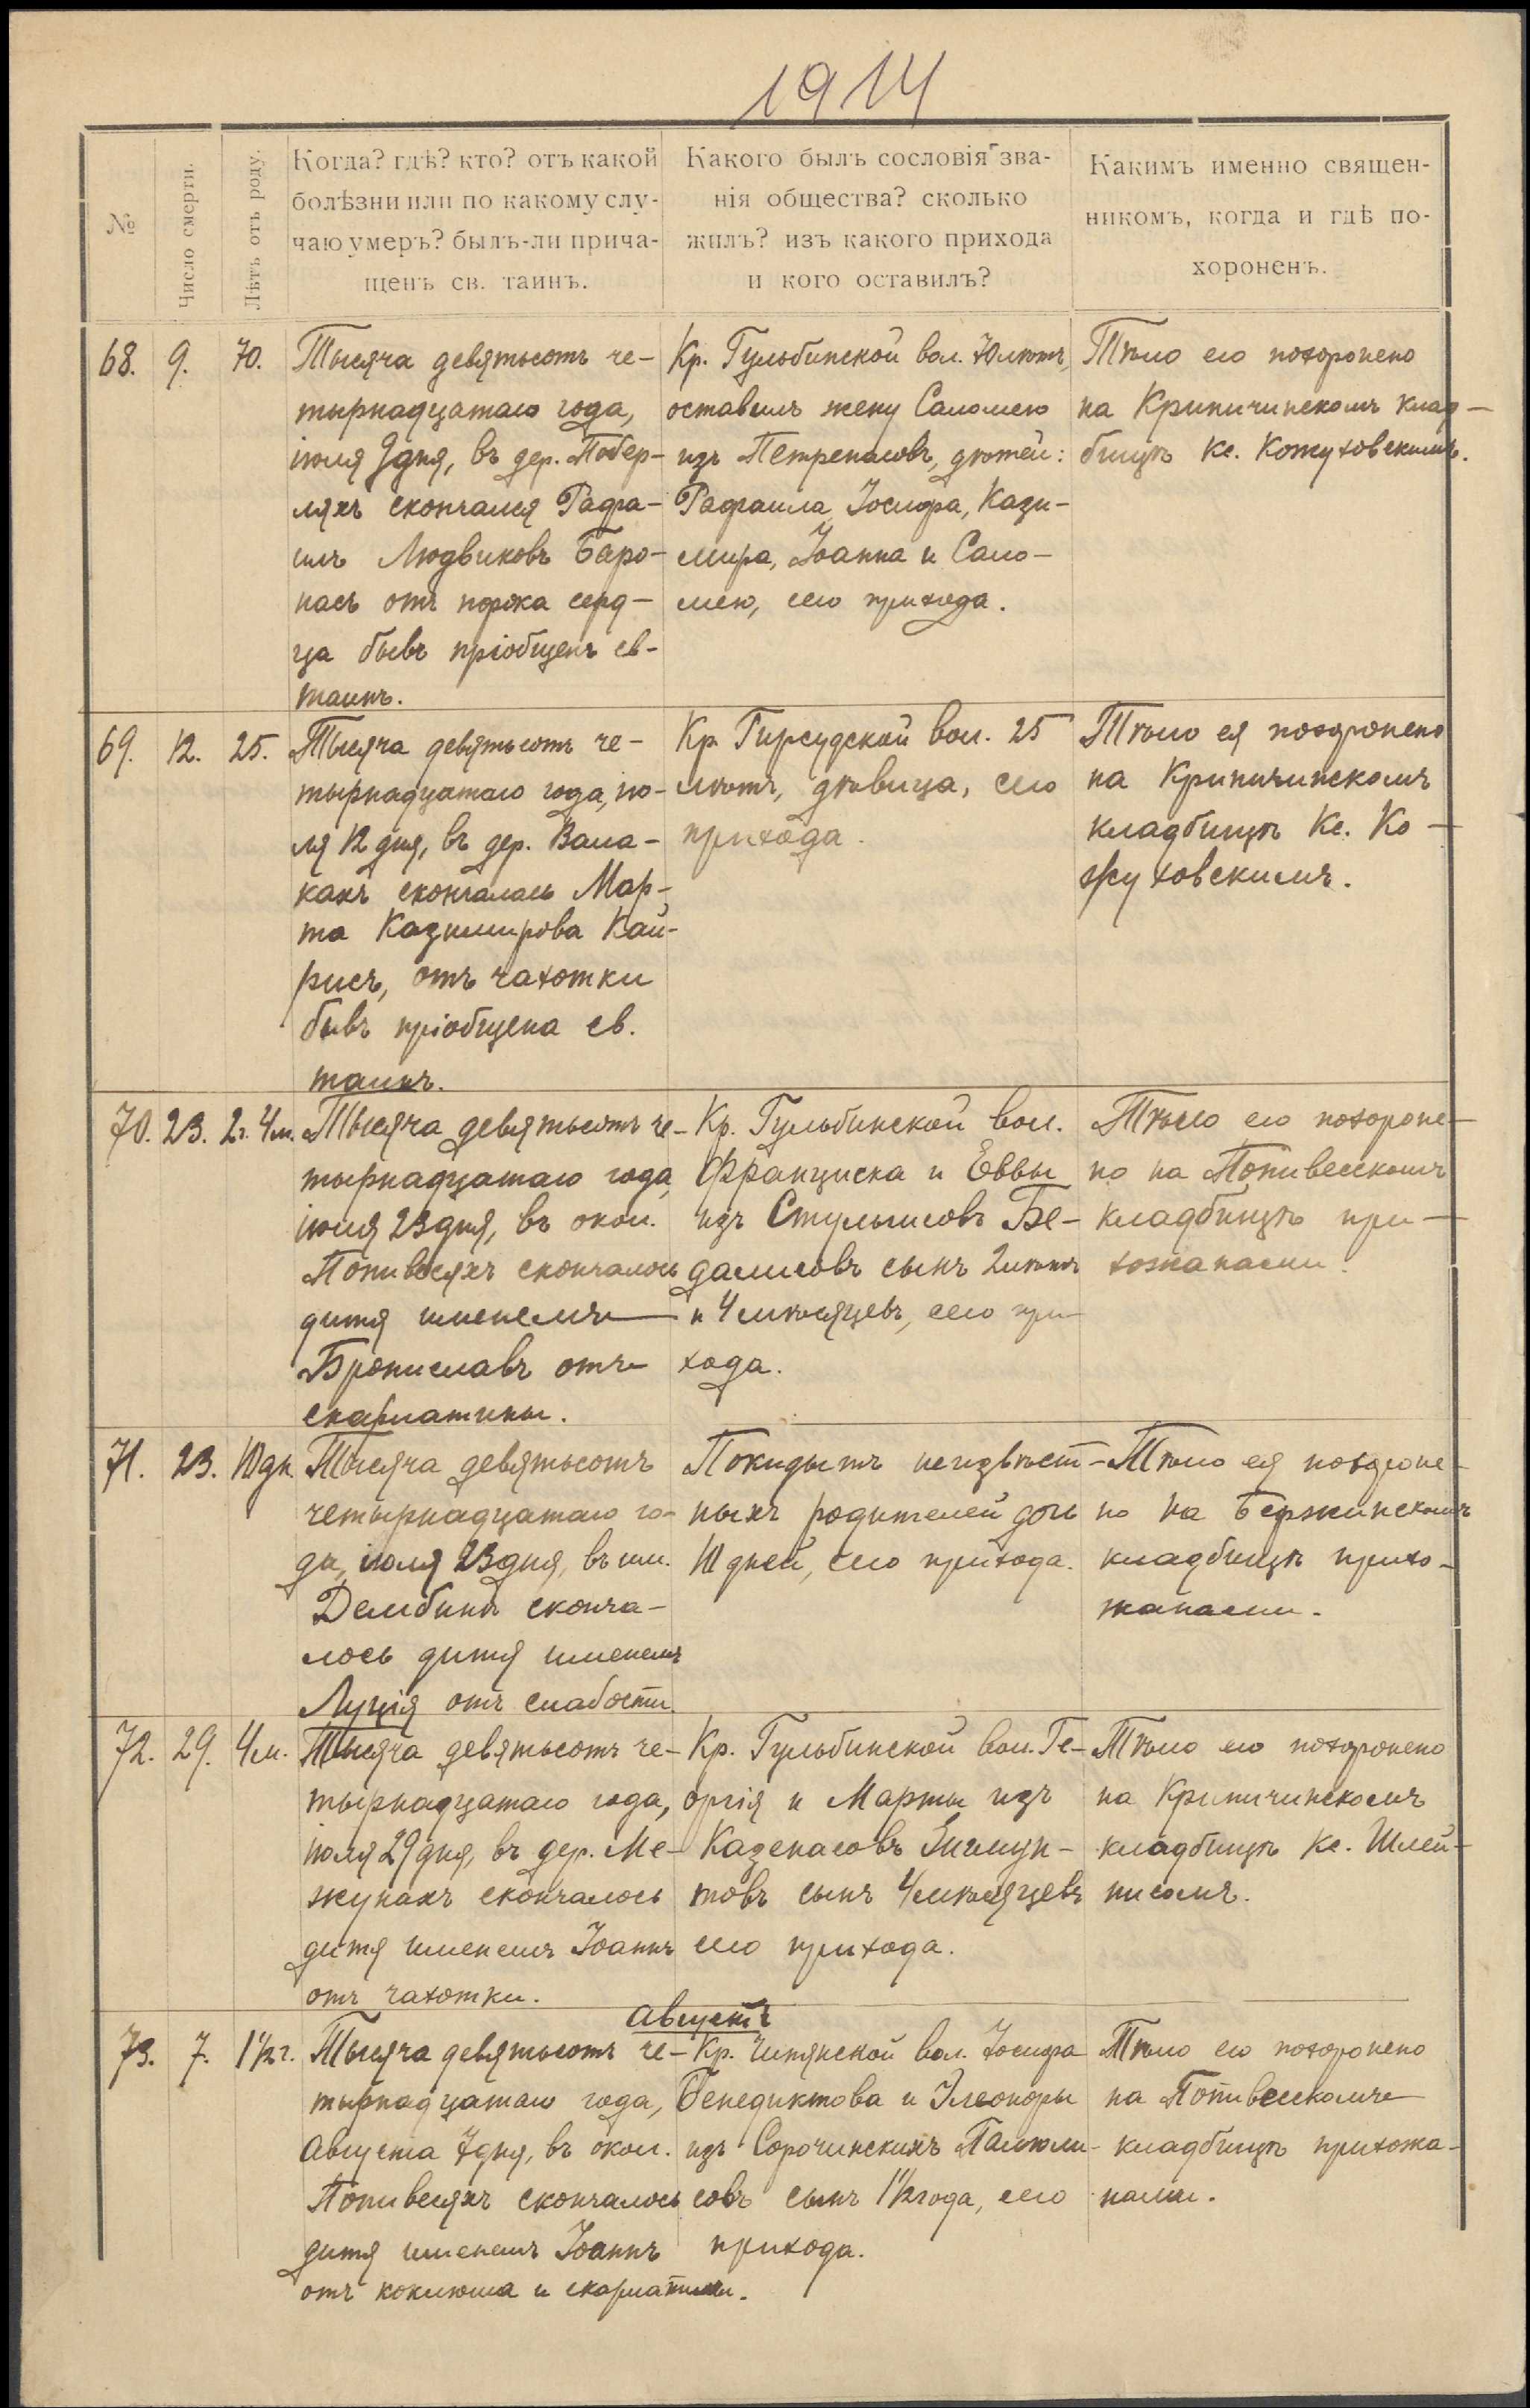 1914
№
Число смерти.
Лѣтъ отъ роду.
Когда? гдѣ? кто? отъ какой
болѣзни или по какому слу-
чаю умеръ? былъ-ли прича-
щенъ св. таинъ.
Какого былъ сословія зва-
нія общества? сколько
жилъ? изъ какого прихода
и кого оставилъ?
Какимъ именно священ-
никомъ, когда и гдѣ по-
хороненъ.
68. 9. 70.
Тысяча девятьсотъ че-
тырнадцатаго года,
іюля 9 дня, въ дер. Побер-
ляхъ скончался Рафа-
илъ Людвиковъ Баро-
насъ отъ порока серд-
ца бывъ пріобщенъ св-
таинъ.
Кр. Гульбинской вол. 70 лѣтъ,
оставилъ жену Саломею
изъ Петренасовъ, дѣтей:
Рафаила, Іосифа, Кази-
мира, Іоанна и Сало-
мею, сего прихода.
Тѣло его похоронено
на Криничинскомъ клад-
бищѣ Кс. Кожуховскимъ.
69. 12. 25.
Тысяча девятьсотъ че-
тырнадцатаго года, ію-
ля 12 дня, въ дер. Вала-
кахъ скончалась Мар-
та Казимирова Кай-
рисъ, отъ чахотки
бывъ пріобщена св.
таинъ.
Кр. Гирсудской вол. 25
лѣтъ, дѣвица, сего
прихода.
Тѣло ея похоронено
на Криничинскомъ
кладбищѣ Кс. Ко-
жуховскимъ.
70. 23. 2 г. 4 м.
Тысяча девятьсотъ че-
тырнадцатаго года,
іюля 23 дня, въ окол.
Попивесяхъ скончалось
дитя именемъ
Брониславъ отъ
скарлатины.
Кр. Гульбинской вол.
Франциска и Еввы
изъ Стульгисовъ Бе-
далисовъ сынъ 2 лѣтъ
и 4 мѣсяцевъ, сего при-
хода.
Тѣло его похороне-
но на Попивесскомъ
кладбищѣ при-
хожанами.
71. 23. 10 дн.
Тысяча девятьсотъ
четырнадцатаго го-
да, іюля 23 дня, въ им.
Дембина сконча-
лось дитя именемъ
Луція отъ слабости.
Покидышъ неизвѣст-
ныхъ родителей дочь
10 дней, сего прихода.
Тѣло ея похороне-
но на Бержинскомъ
кладбищѣ прихо-
жанами.
72. 29. 4 м.
Тысяча девятьсотъ че-
тырнадцатаго года,
іюля 29 дня, въ дер. Ме-
жунахъ скончалось
дитя именемъ Іоаннъ
отъ чахотки.
Кр. Гульбинской вол. Ге-
оргія и Марты изъ
Казенасовъ
товъ сынъ 4 мѣсяцевъ
сего прихода.
Тѣло его похоронено
на Криничинскомъ
кладбищѣ Кс. Шлей-
нисомъ.
Августъ
73. 7. 1½ г.
Тысяча девятьсотъ че-
тырнадцатаго года,
августа 7 дня, въ окол.
Попивесяхъ скончалось
дитя именемъ Іоаннъ
отъ коклюша и скарлатины.
Кр. Читянской вол. Іосифа
Бенедиктова и Элеоноры
изъ Сорочинскихъ Палюли-
совъ сынъ 1½ года, сего
прихода.
Тѣло его похоронено
на Попивесскомъ
кладбищѣ прихожа-
нами.